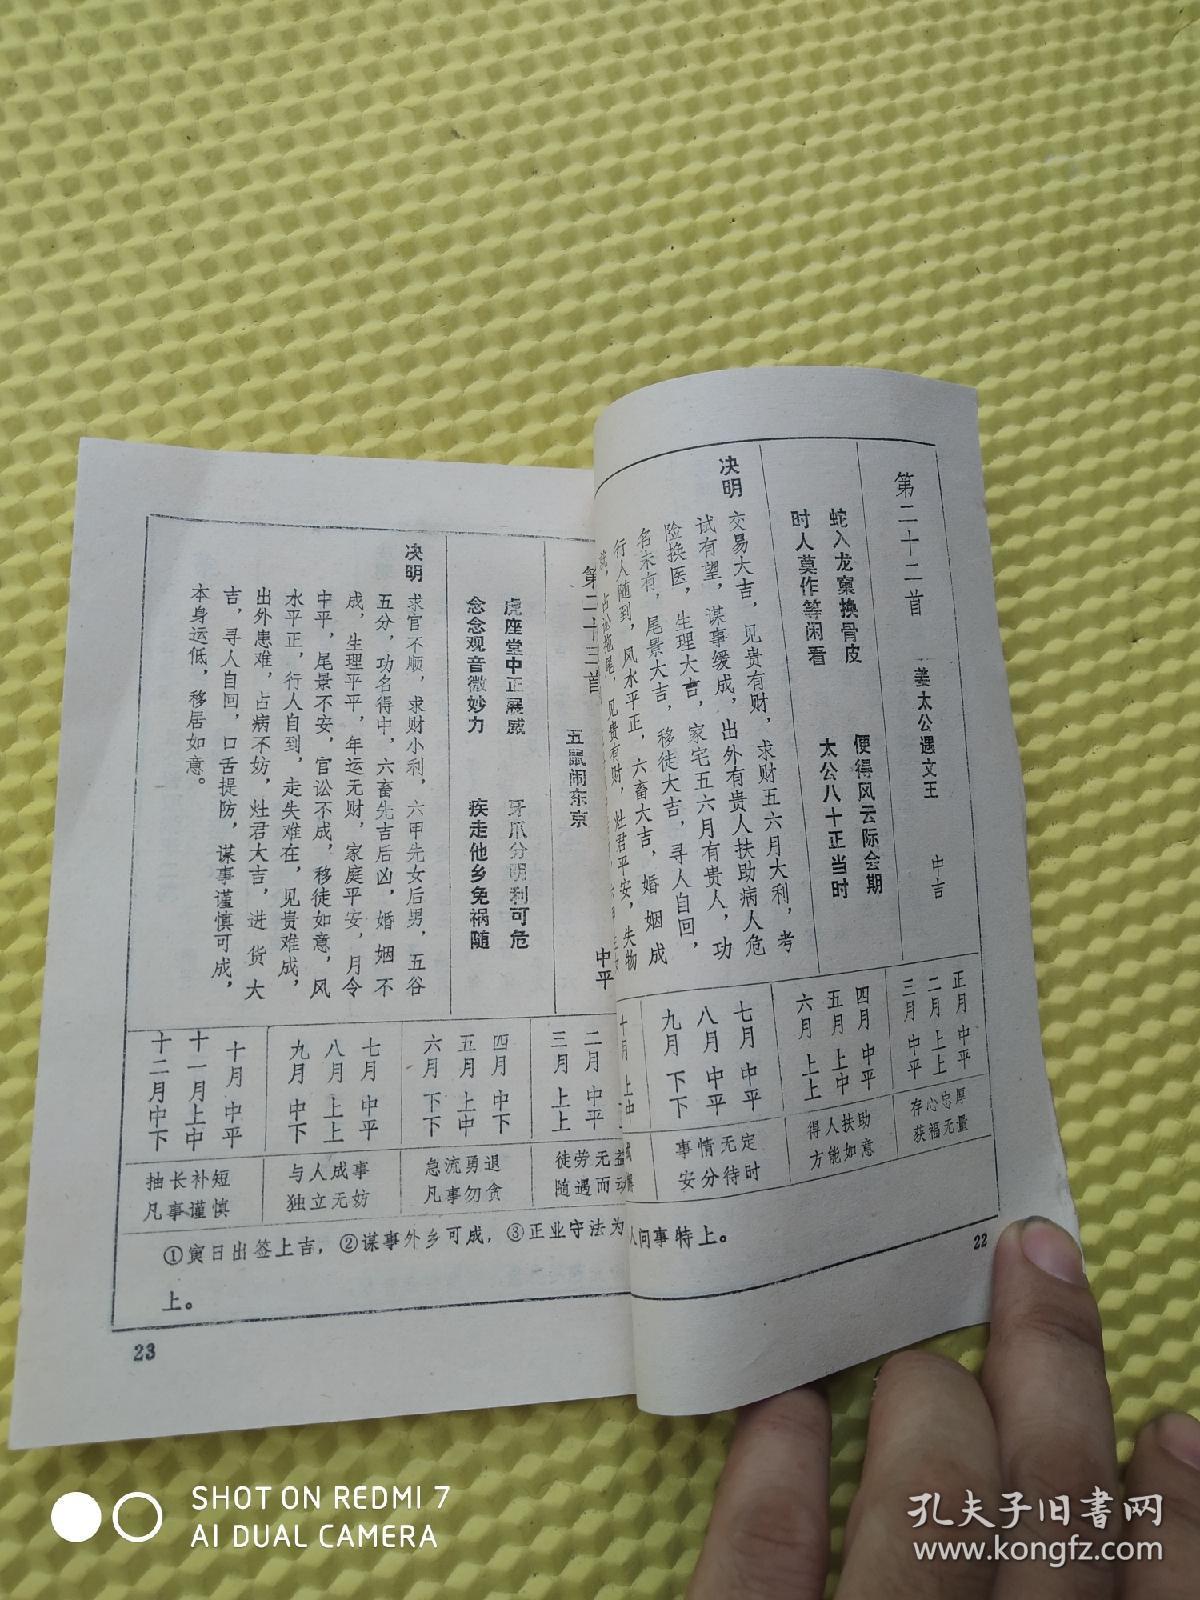 第二十二首 姜太公遇文王 中吉
蛇入龙窠换骨皮 便得风云际会期
时人莫作等闲看 太公八十正当时
决明 交易大吉，见贵有财，求财五六月大利，考
试有望，谋事缓成，出外有贵人扶助病人危
险换医，生理大吉，家宅五六月有贵人，功
名未有，尾景大吉，移徒大吉，寻人自回，
行人随到，风水平正，六畜大吉，婚姻成
占讼拖尾，见贵有财，灶君平安，失物
正月中平
二月上上
三月中平
存心忠厚
获福无量
四月中平
五月上中
六月上上
得人扶助
方能如意
七月中平
八月中平
九月下下
事情无定
安分待时
十月上中
人问事特上。
22
第二十三首 五鼠闹东京 中平
虎座堂中正展威 牙爪分明利可危
念念观音微妙力 疾走他乡免祸随
决明 求官不顺，求财小利，六甲先女后男，五谷
五分，功名得中，六畜先吉后凶，婚姻不
成，生理平平，年运无财，家庭平安，月令
中平，尾景不安，官讼不成，移徒如意，风
水平正，行人自到，走失难在，见贵难成，
出外患难，占病不妨，灶君大吉，进货大
吉，寻人自回，口舌提防，谋事谨慎可成，
本身运低，移居如意。
二月中平
三月上上
徒劳无益
随遇而
四月中下
五月上中
六月下下
急流勇退
凡事勿贪
七月中平
八月上上
九月中下
与人成事
独立无妨
十月中平
十一月上中
十二月中下
抽长补短
凡事谨慎
①寅日出签上吉，②谋事外乡可成，③正业守法为
上。
23
SHOT ON REDMI 7
AI DUAL CAMERA
孔夫子旧书网
www.kongfz.com